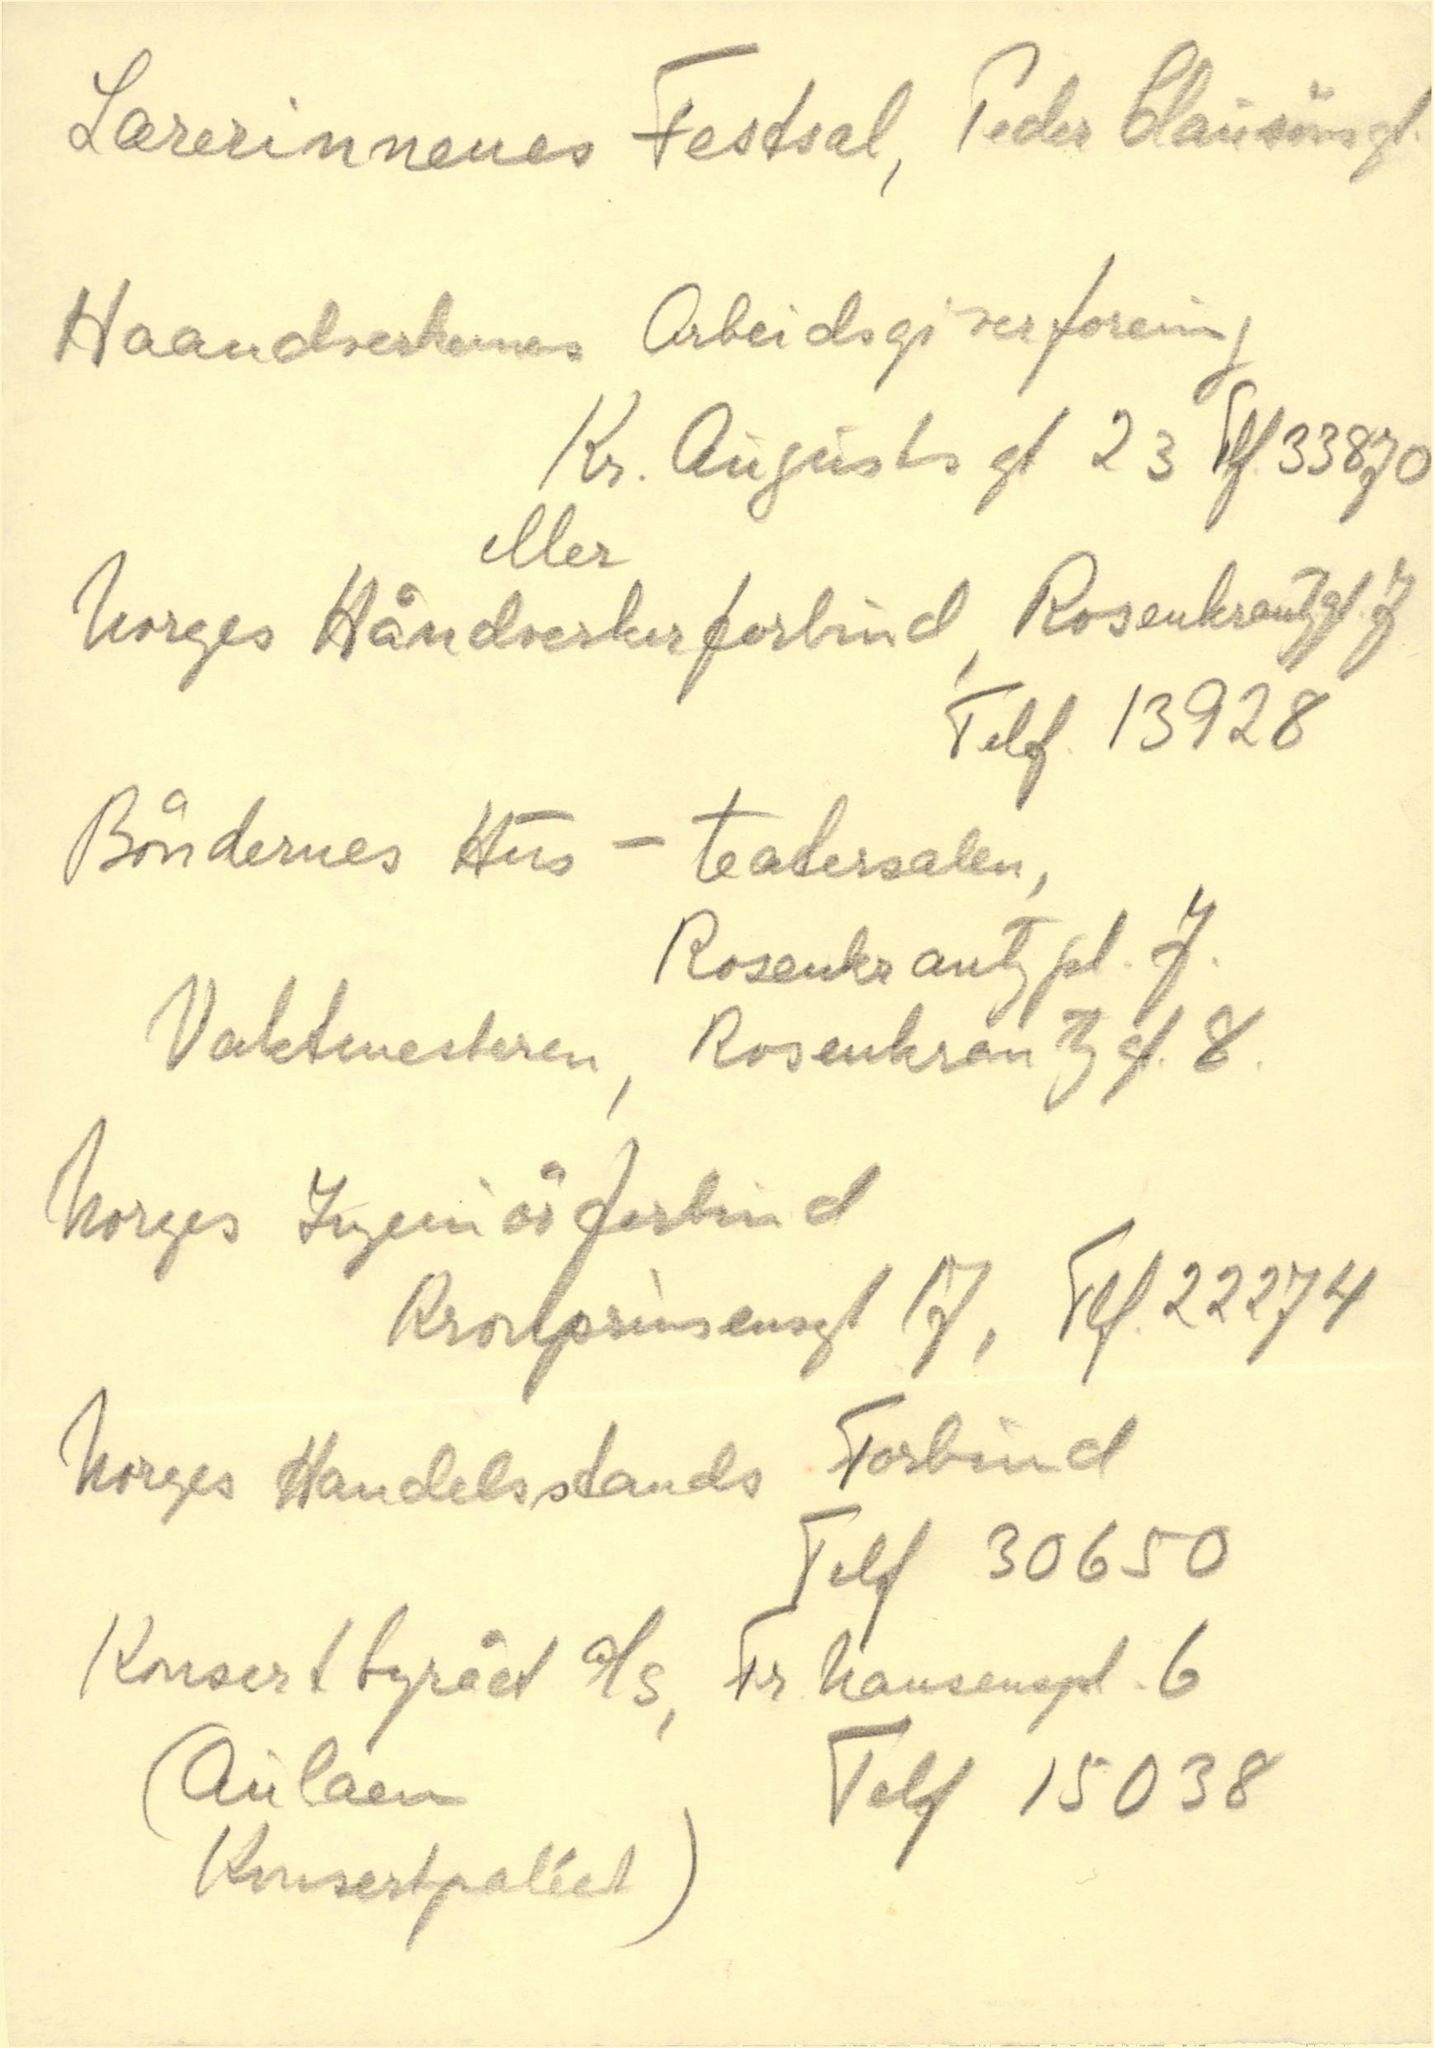 Lærerinnenes Festsal, Peder Claussönsgt.
Haandverkernes Arbeidsgiverforening
Kr. Augusts gt 23 Tlf. 33870
eller
Norges Håndverkerforbund, Rosenkrantzgt. 7
Telf. 13928
Böndernes Hus - teatersalen,
Rosenkrantzgt. 7.
Vaktmesteren, Rosenkrantzgt. 8.
Norges Ingeniörforbund
Kronprinsensgt 17, Tlf. 22274
Norges Handelsstands Forbund
Telf 30650
Konsertbyrået A/S, Fr. Nansenspl. 6
(Aulaen Telf 15038
Konsertpaleet)